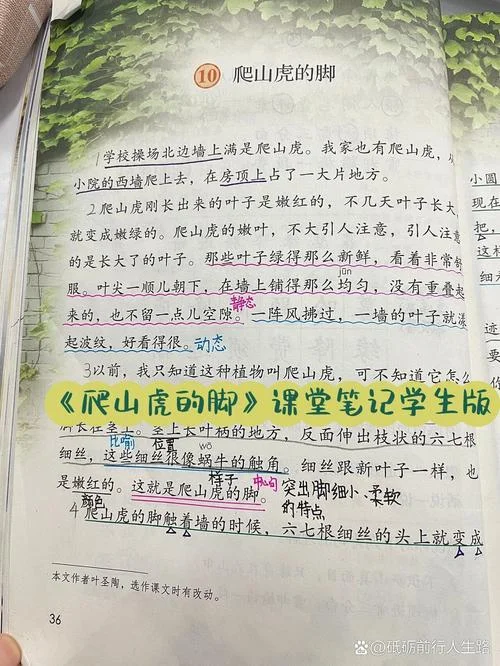 10 爬山虎的脚
1学校操场北边墙上满是爬山虎。我家也有爬山虎,从
小院的西墙爬上去,在房顶上占了一大片地方。
2爬山虎刚长出来的叶子是嫩红的,不几天叶子长大,
就变成嫩绿的。爬山虎的嫩叶,不大引人注意,引人注意
的是长大了的叶子。那些叶子绿得那么新鲜,看着非常舒
jūn
服。叶尖一顺儿朝下,在墙上铺得那么均匀,没有重叠起
静态
来的,也不留一点儿空隙。一阵风拂过,一墙的叶子就漾
起波纹,好看得很。动态
3以前,我只知道这种植物叫爬山虎,可不知道它怎么
《爬山虎的脚》课堂笔记学生版
脚长在茎上。茎上长叶柄的地方,反面伸出枝状的六七根
比喻 位置 wō
细丝,这些细丝很像蜗牛的触角。细丝跟新叶子一样,也
样子 中心句
是嫩红的。这就是爬山虎的脚。突出脚细小、柔软
颜色 的特点
4爬山虎的脚触着墙的时候,六七根细丝的头上就变成
本文作者叶圣陶,选作课文时有改动。
36
小圆
现在
把,
这样
细水
@砥砺前行人生路